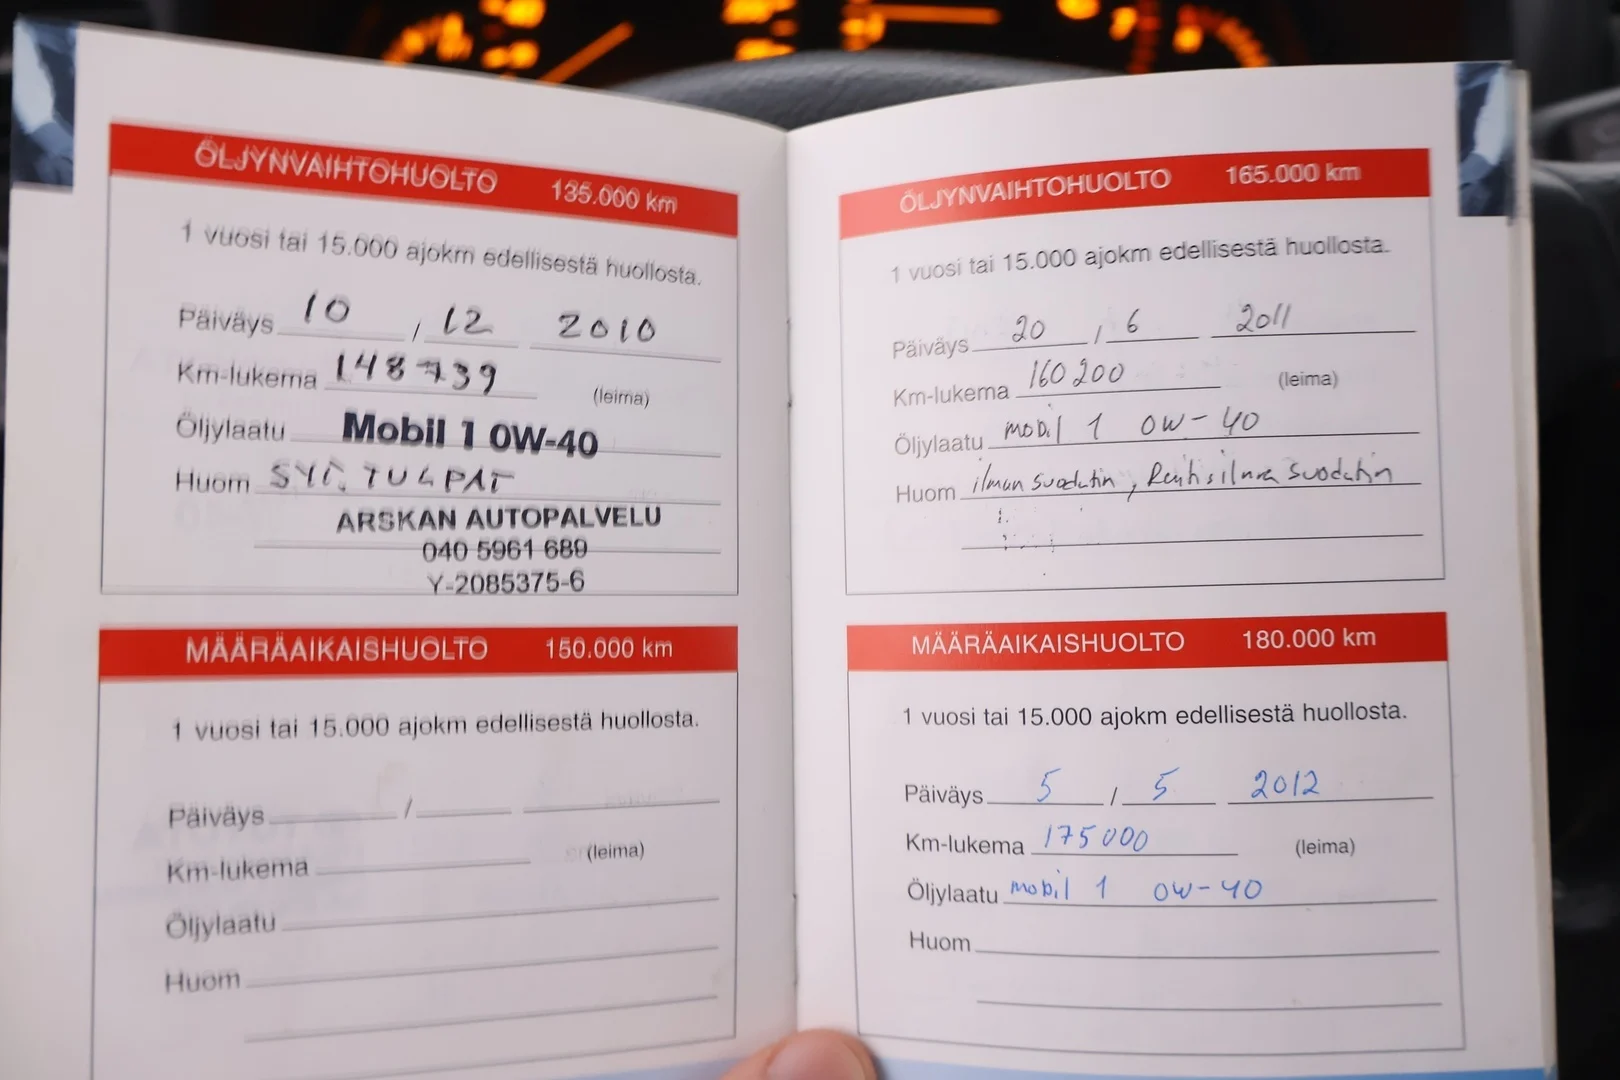 ÖLJYNVAIHTOHUOLTO 135.000 km
1 vuosi tai 15.000 ajokm edellisestä huollosta.
Päiväys 10 / 12 2010
Km-lukema 148739 (leima)
Öljylaatu Mobil 1 0W-40
Huom SYT. TULPAT
ARSKAN AUTOPALVELU
040 5961 689
Y-2085375-6
MÄÄRÄAIKAISHUOLTO 150.000 km
1 vuosi tai 15.000 ajokm edellisestä huollosta.
Päiväys /
Km-lukema (leima)
Öljylaatu
Huom
ÖLJYNVAIHTOHUOLTO 165.000 km
1 vuosi tai 15.000 ajokm edellisestä huollosta.
Päiväys 20 / 6 2011
Km-lukema 160 200 (leima)
Öljylaatu mobil 1 0w-40
Huom ilman suodatin, Raitisilma suodatin
MÄÄRÄAIKAISHUOLTO 180.000 km
1 vuosi tai 15.000 ajokm edellisestä huollosta.
Päiväys 5 / 5 2012
Km-lukema 175000 (leima)
Öljylaatu mobil 1 0w-40
Huom